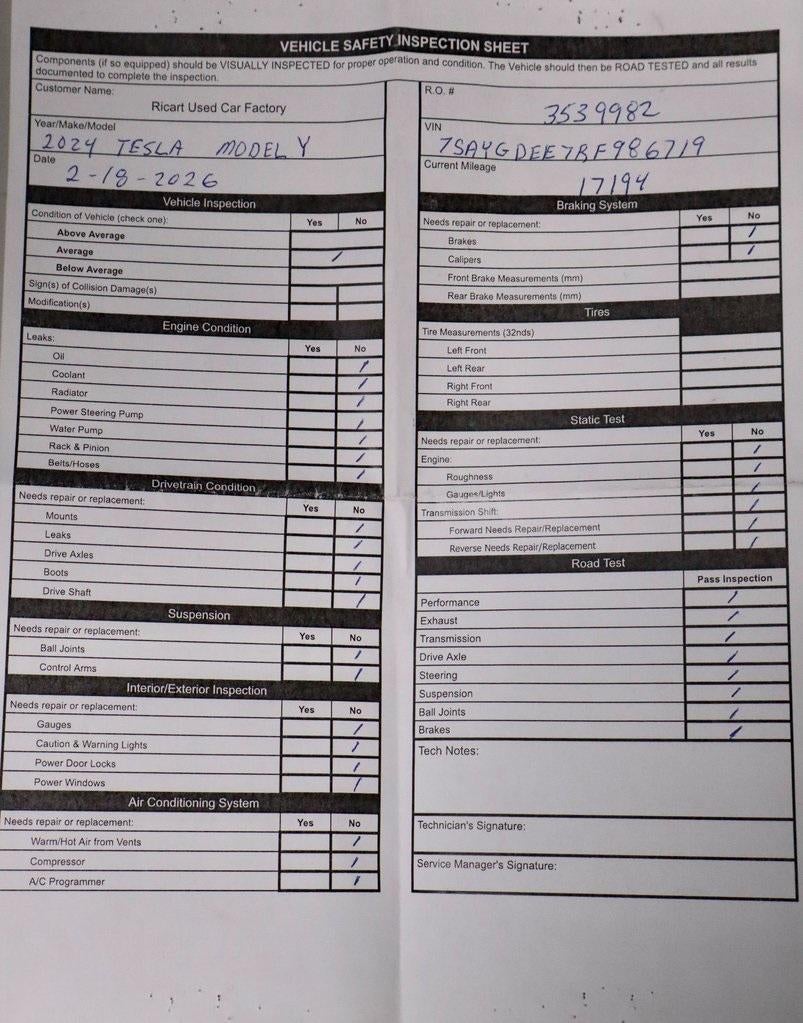 VEHICLE SAFETY INSPECTION SHEET
Components (if so equipped) should be VISUALLY INSPECTED for proper operation and condition. The Vehicle should then be ROAD TESTED and all results
documented to complete the inspection.
Customer Name:
Ricart Used Car Factory
Year/Make/Model
2024 TESLA MODEL Y
Date
2-18-2026
Vehicle Inspection
Condition of Vehicle (check one): Yes No
Above Average
Average
Below Average
Sign(s) of Collision Damage(s)
Modification(s)
Engine Condition
Leaks: Yes No
Oil
Coolant
Radiator
Power Steering Pump
Water Pump
Rack & Pinion
Belts/Hoses
Drivetrain Condition
Needs repair or replacement: Yes No
Mounts
Leaks
Drive Axles
Boots
Drive Shaft
Suspension
Needs repair or replacement: Yes No
Ball Joints
Control Arms
Interior/Exterior Inspection
Needs repair or replacement: Yes No
Gauges
Caution & Warning Lights
Power Door Locks
Power Windows
Air Conditioning System
Needs repair or replacement: Yes No
Warm/Hot Air from Vents
Compressor
A/C Programmer
R.O. #
3539982
VIN
7SAYGDEE7RF986719
Current Mileage
17194
Braking System
Needs repair or replacement: Yes No
Brakes
Calipers
Front Brake Measurements (mm)
Rear Brake Measurements (mm)
Tires
Tire Measurements (32nds)
Left Front
Left Rear
Right Front
Right Rear
Static Test
Needs repair or replacement: Yes No
Engine:
Roughness
Gauges/Lights
Transmission Shift:
Forward Needs Repair/Replacement
Reverse Needs Repair/Replacement
Road Test
Pass Inspection
Performance
Exhaust
Transmission
Drive Axle
Steering
Suspension
Ball Joints
Brakes
Tech Notes:
Technician's Signature:
Service Manager's Signature: